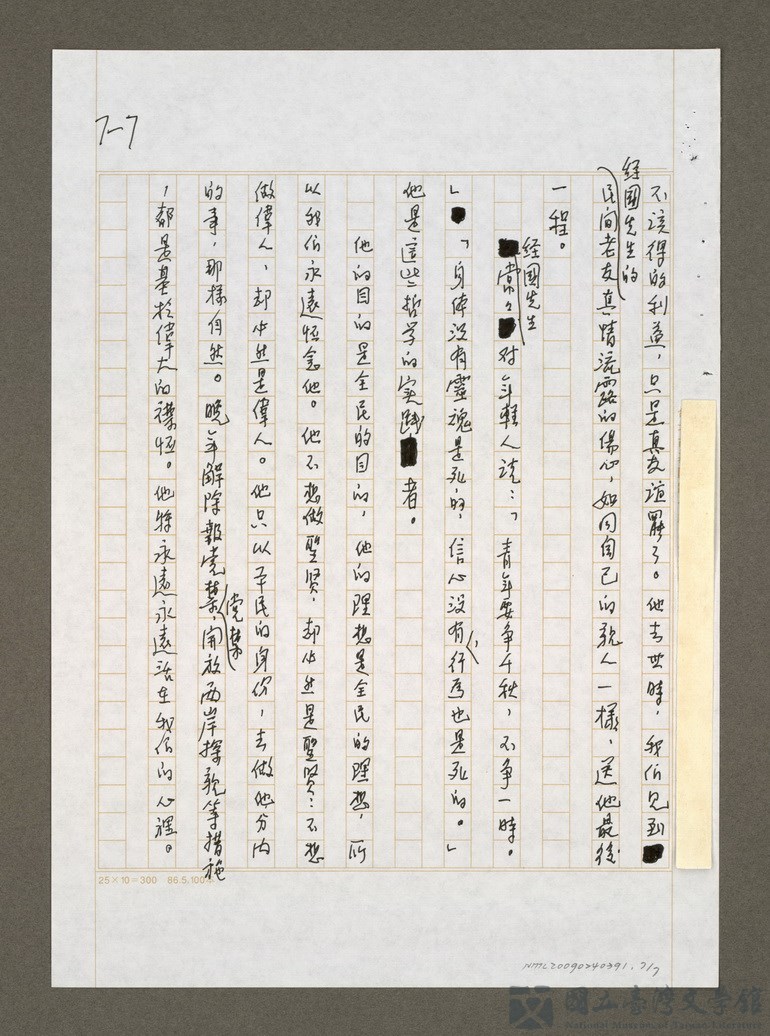 7-7
不該得的利益，只是真友誼罷了。他去世時，我们見到
經國先生的
民间老友真情流露的傷心，如同自己的親人一樣，送他最後
一程。
經國先生
常々对年輕人説：「青年要争千秋，不争一時。
」「身体没有靈魂是死的，信心没有，行為也是死的。」
他是這些哲学的实踐者。
他的目的是全民的目的，他的理想是全民的理想，所
以我们永遠怀念他。他不想做聖贤，却必然是聖贤；不想
做偉人，却必然是偉人。他只以平民的身份，去做他分内
的事，那樣自然。晚年解除報党禁、開放两岸探親等措施
党禁
，都是基於偉大的襟怀。他將永遠永遠活在我们的心裡。
25×10=300 86.5.100
NMTL20090240391.7/7
國立臺灣文學館
National Museum of Taiwan Literature